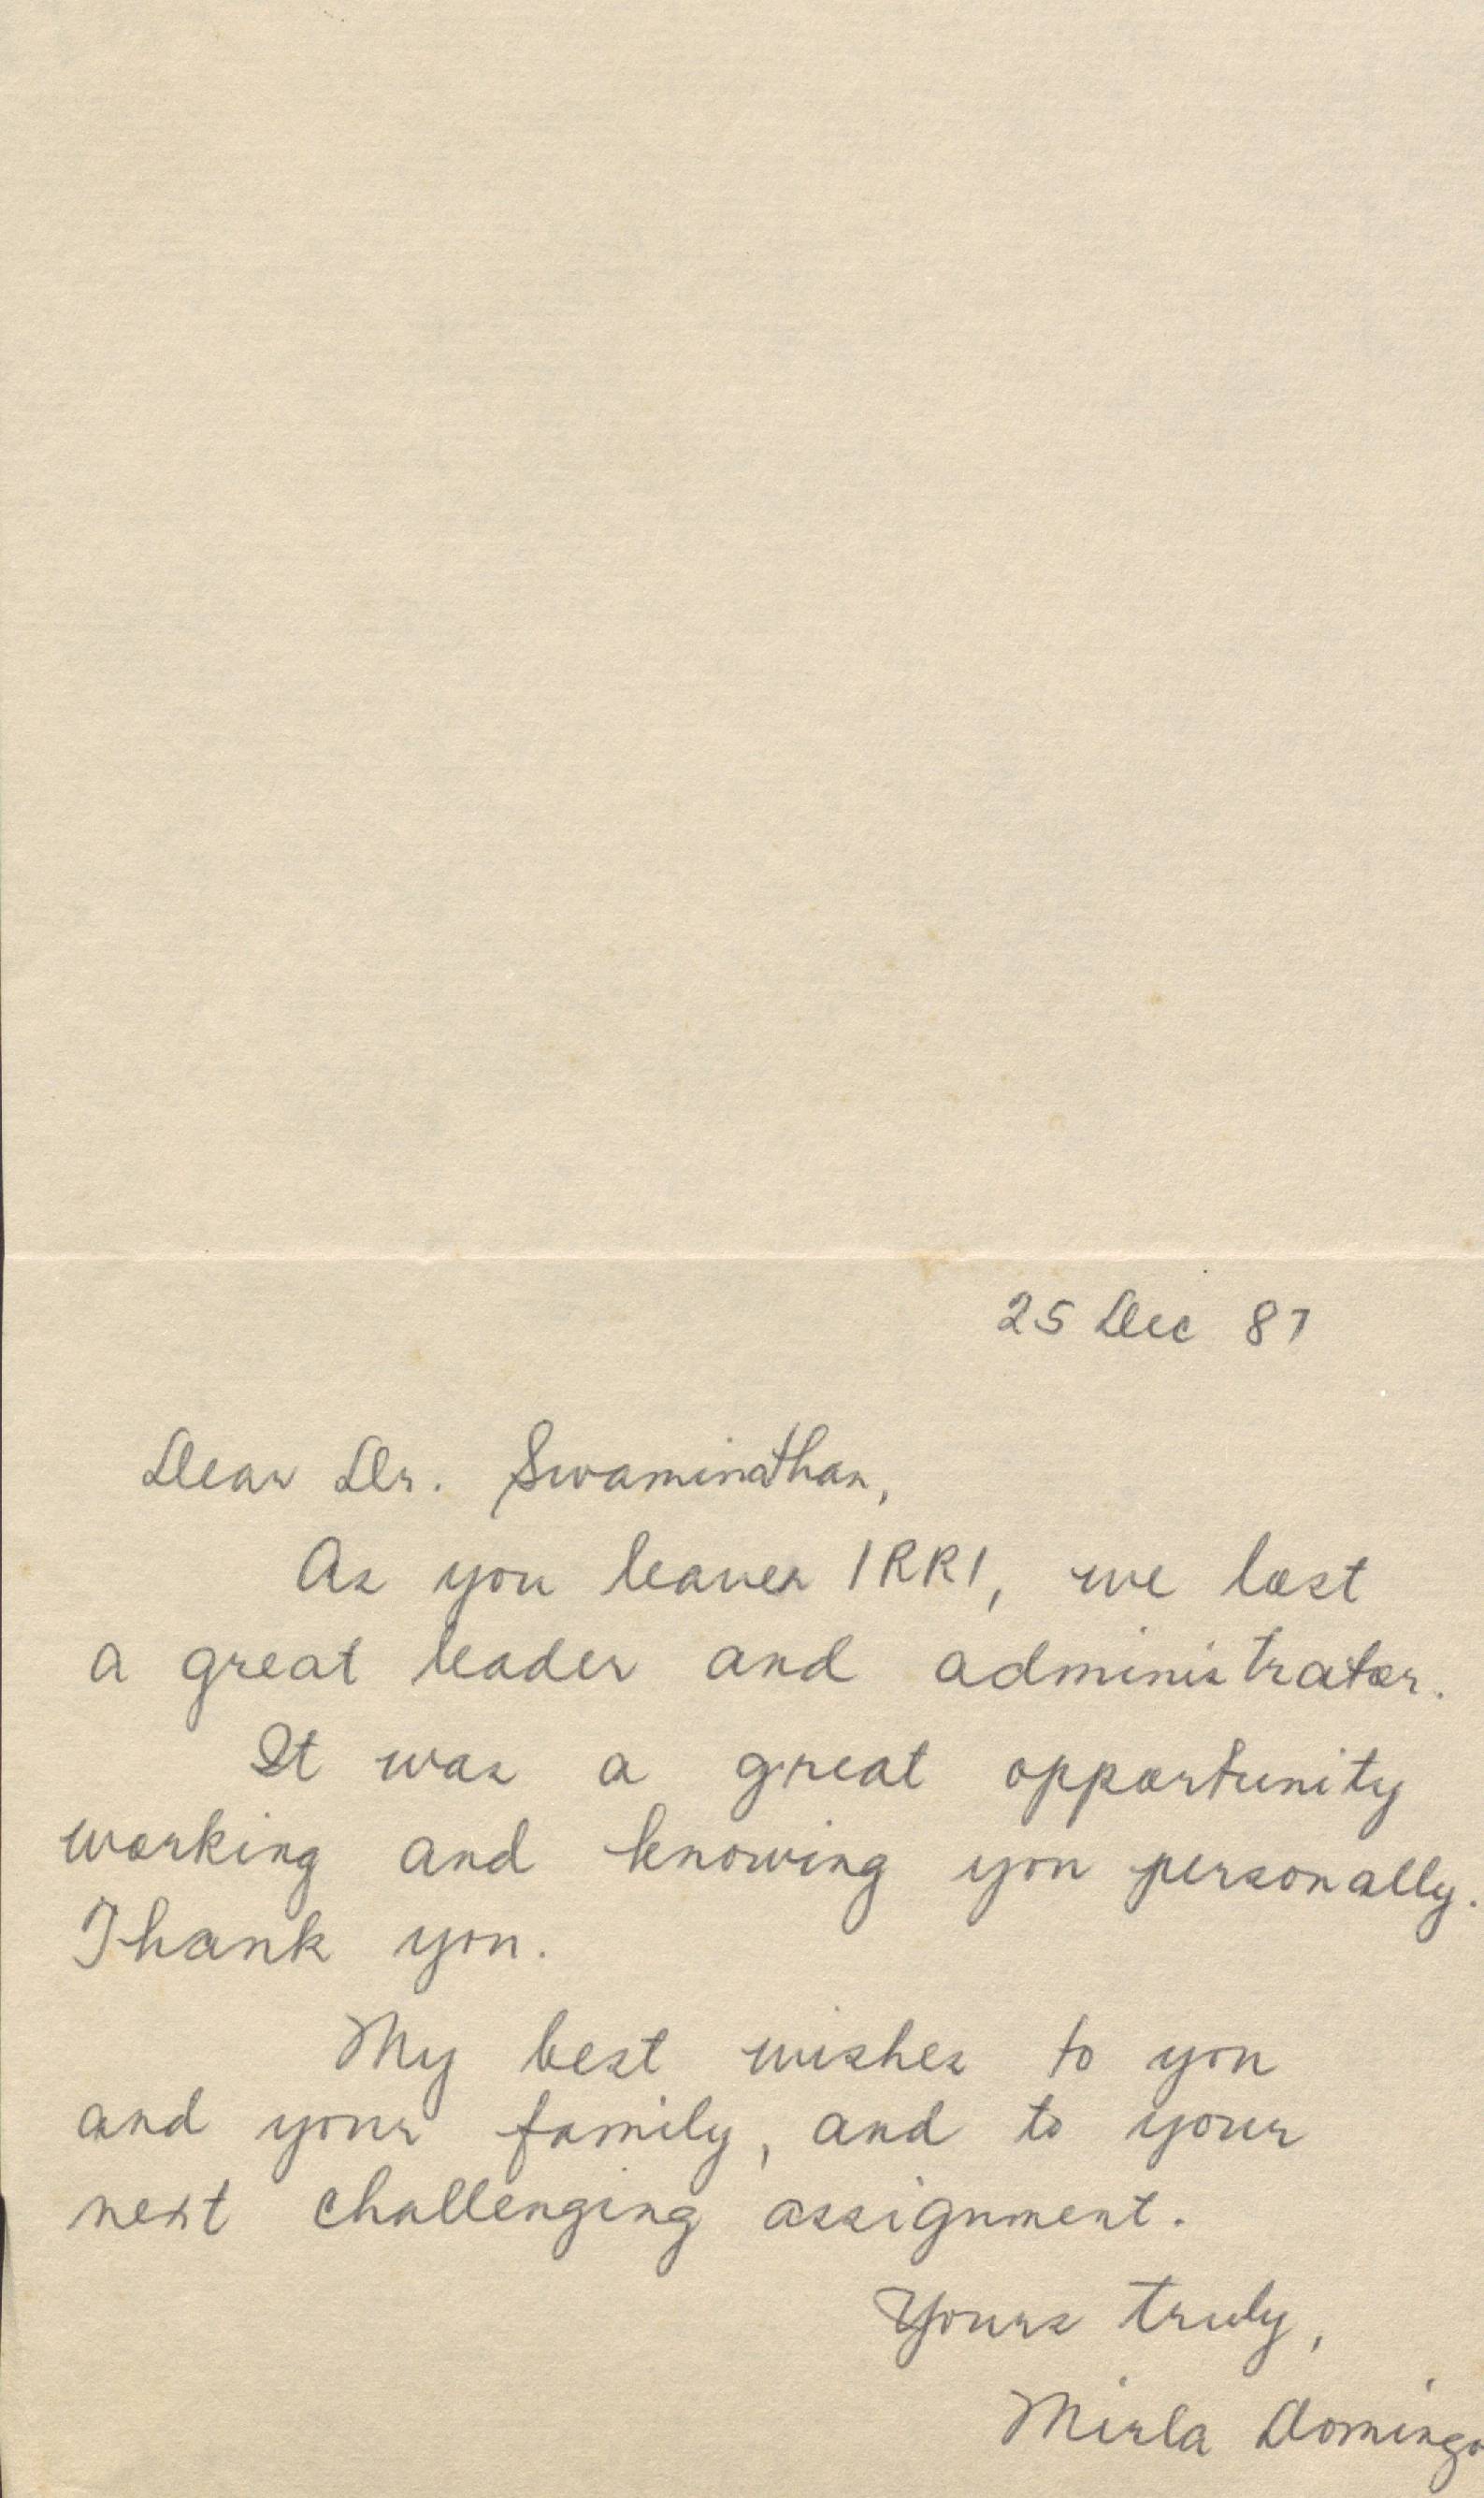 25 Dec 87
Dear Dr. Swaminathan,
As you leaves IRRI, we lost
a great leader and administrator.
It was a great opportunity
working and knowing you personally.
Thank you.
My best wishes to you
and your family, and to your
next challenging assignment.
Yours truly,
Mirla Domingo